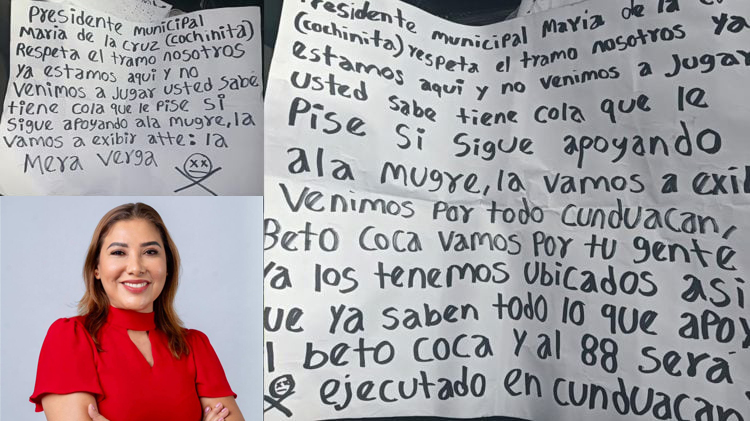 Presidente municipal
Maria de la Cruz (cochinita)
Respeta el tramo nosotros
ya estamos aqui y no
venimos a Jugar usted sabe
tiene cola que le Pise Si
Sigue apoyando ala mugre, la
vamos a exibir atte: la
Mera Verga
residente municipal Maria de la
(cochinita) respeta el tramo nosotros ya
estamos aqui y no venimos a Jugar
usted sabe tiene cola que le
Pise Si Sigue apoyando
ala mugre, la vamos a exi
Venimos Por todo Cunduacan,
Beto Coca vamos Por tu gente
ya los tenemos Ubicados asi
ue ya saben todo lo que apoy
l beto coca y al 88 Sera
ejecutado en cunduacan